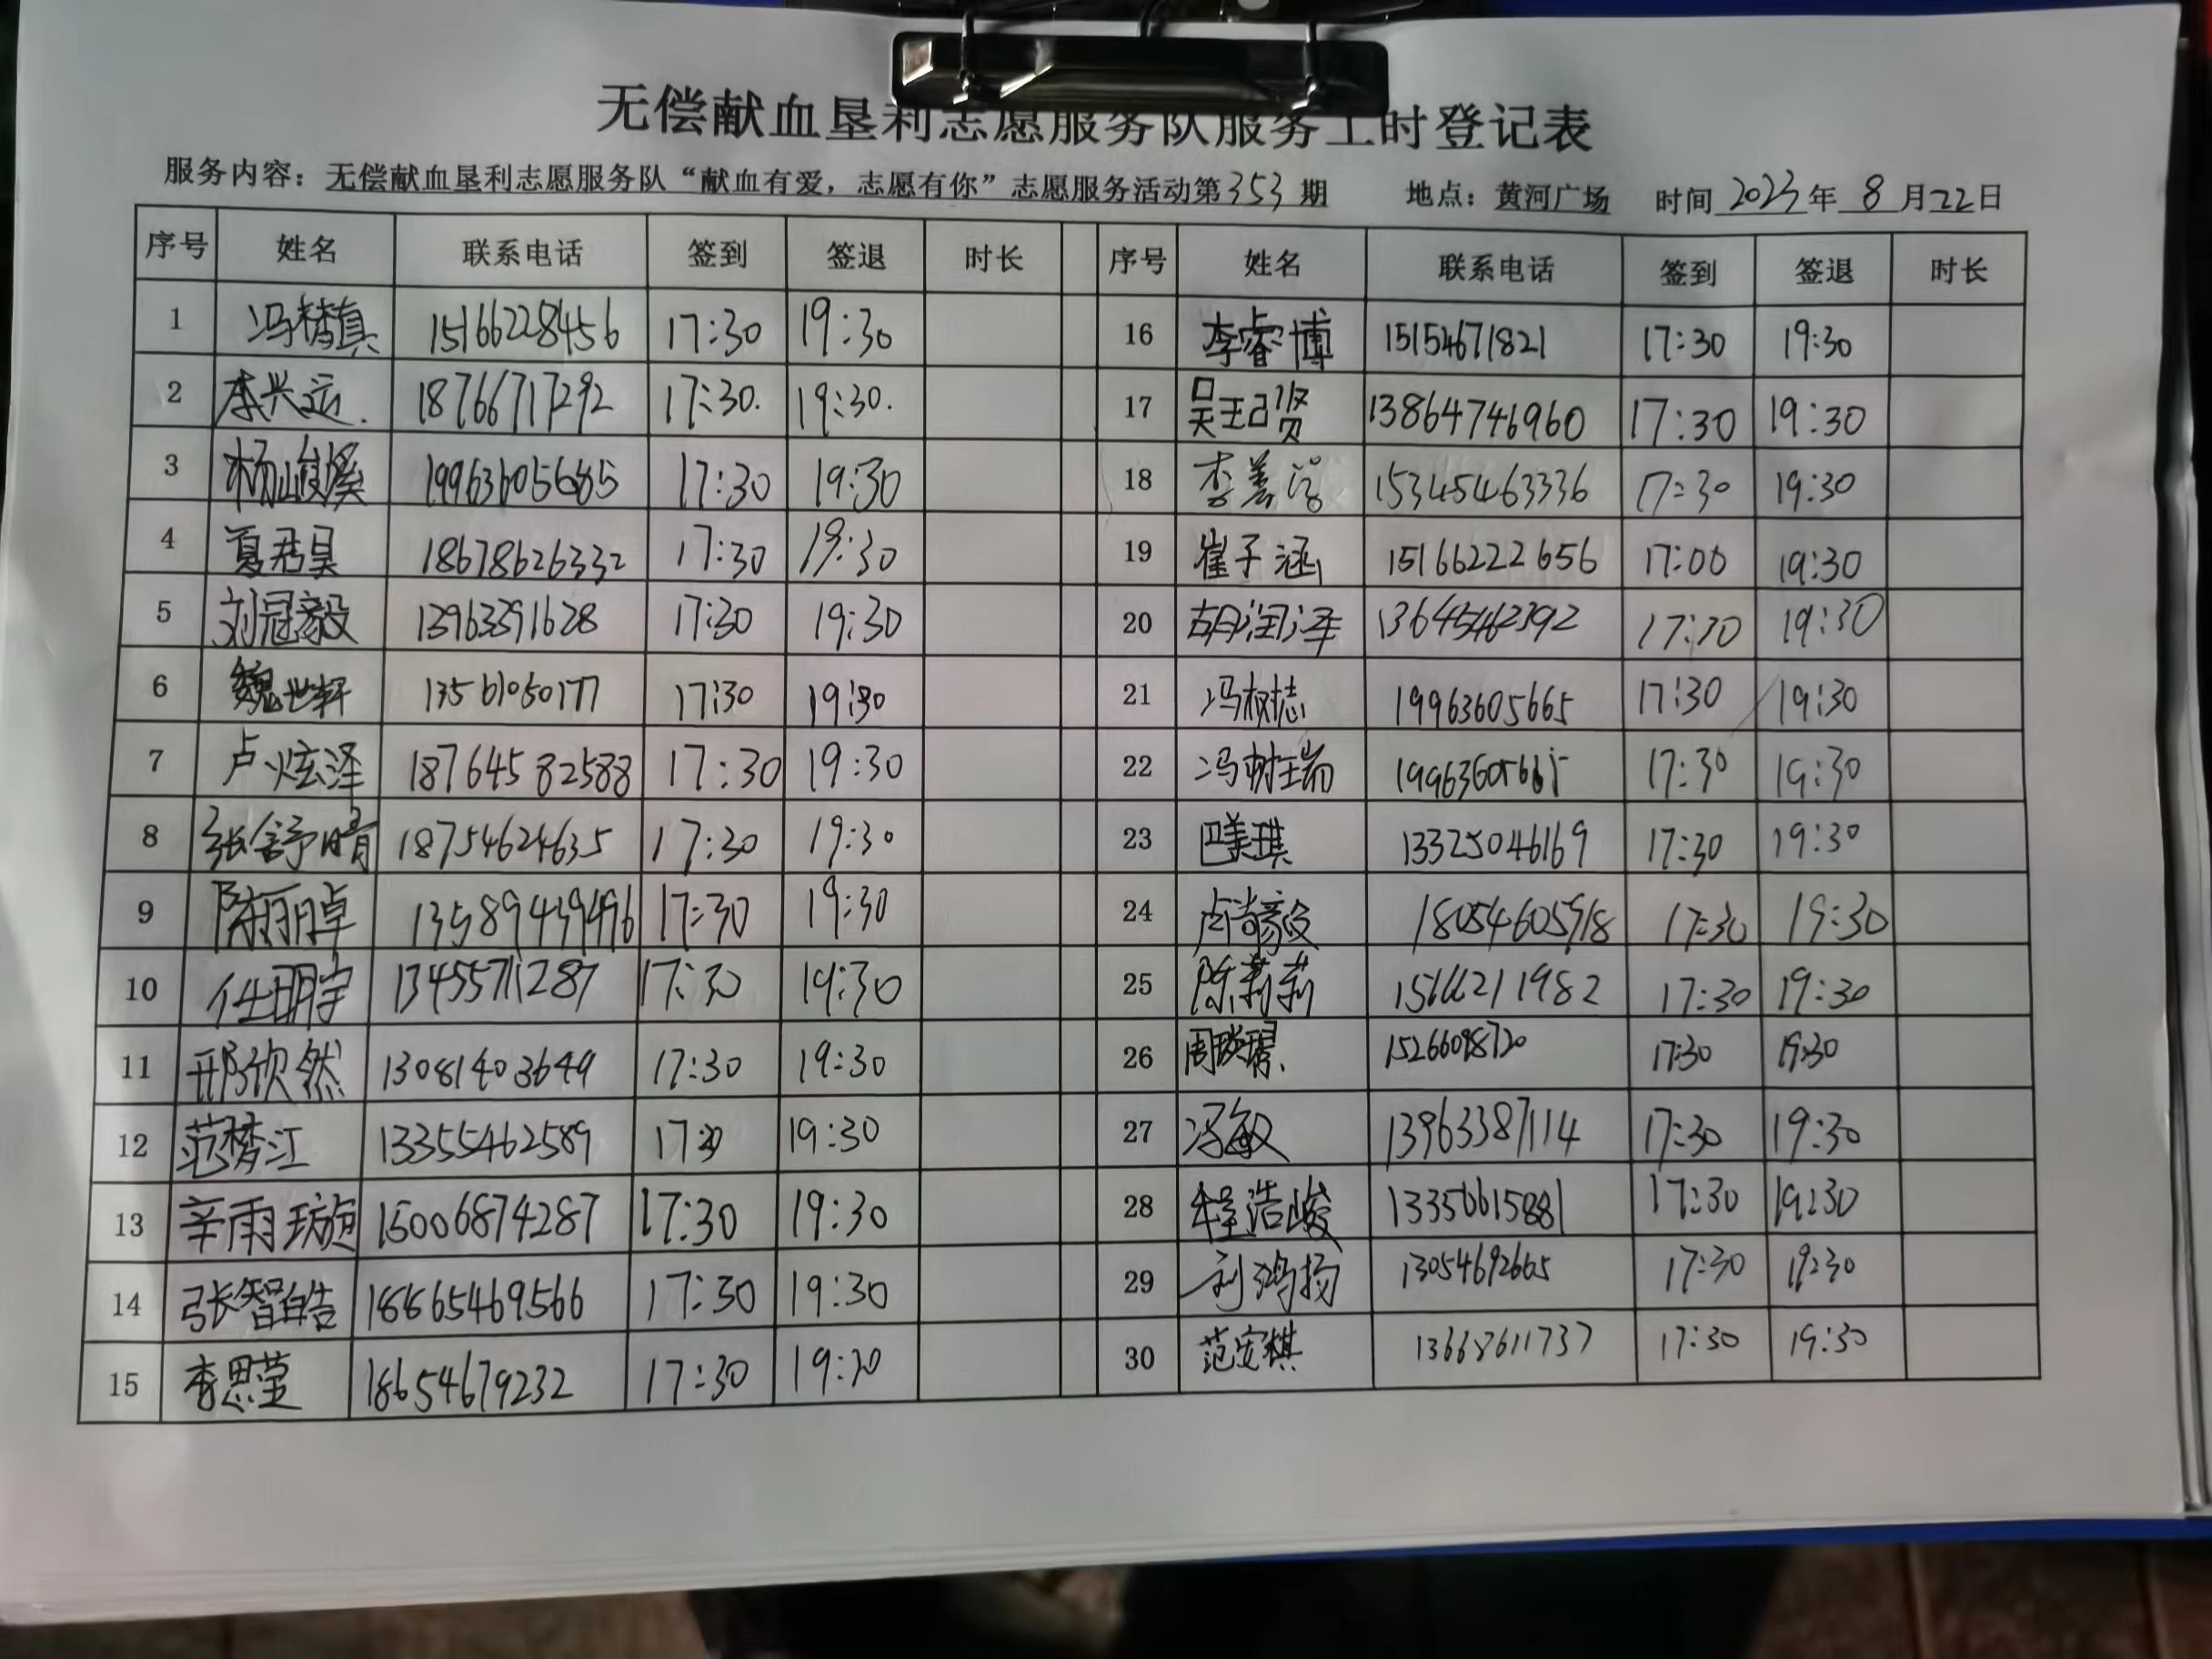 无偿献血垦利志愿服务队服务工时登记表
服务内容：无偿献血垦利志愿服务队“献血有爱，志愿有你”志愿服务活动第353期 地点：黄河广场 时间2023年8月22日
序号 姓名 联系电话 签到 签退 时长 序号 姓名 联系电话 签到 签退 时长
1 冯梓真 15166228456 17:30 19:30 16 李睿博 15154671821 17:30 19:30
2 李兴运. 18766717292 17:30. 19:30. 17 吴玘贤 13864746960 17:30 19:30
3 杨峻溪 19963605685 17:30 19:30 18 李善 15345463336 17:30 19:30
4 夏君昊 18678626332 17:30 19:30 19 崔子涵 15166222656 17:00 19:30
5 刘冠毅 13963391628 17:30 19:30 20 胡润泽 13645462392 17:30 19:30
6 魏世轩 13561050177 17:30 19:30 21 冯树志 19963605665 17:30 19:30
7 卢炫泽 18764582588 17:30 19:30 22 冯树瑞 19963605665 17:30 19:30
8 张舒晴 18754624635 17:30 19:30 23 巴美琪 13325046169 17:30 19:30
9 陈丽卓 13589439496 17:30 19:30 24 卢尚毅 18054605918 17:30 19:30
10 任明宇 13455711287 17:30 19:30 25 陈莉莉 15666211982 17:30 19:30
11 邢欣然 13081403649 17:30 19:30 26 周 15266098720 17:30 19:30
12 范梦江 13355462589 17:30 19:30 27 冯敏 13963387114 17:30 19:30
13 辛雨璇 15006874287 17:30 19:30 28 程浩峻 13356615881 17:30 19:30
14 张智皓 18865469566 17:30 19:30 29 刘鸿扬 13054692665 17:30 19:30
15 李思莹 18654679232 17:30 19:30 30 范安棋 13668611737 17:30 19:30